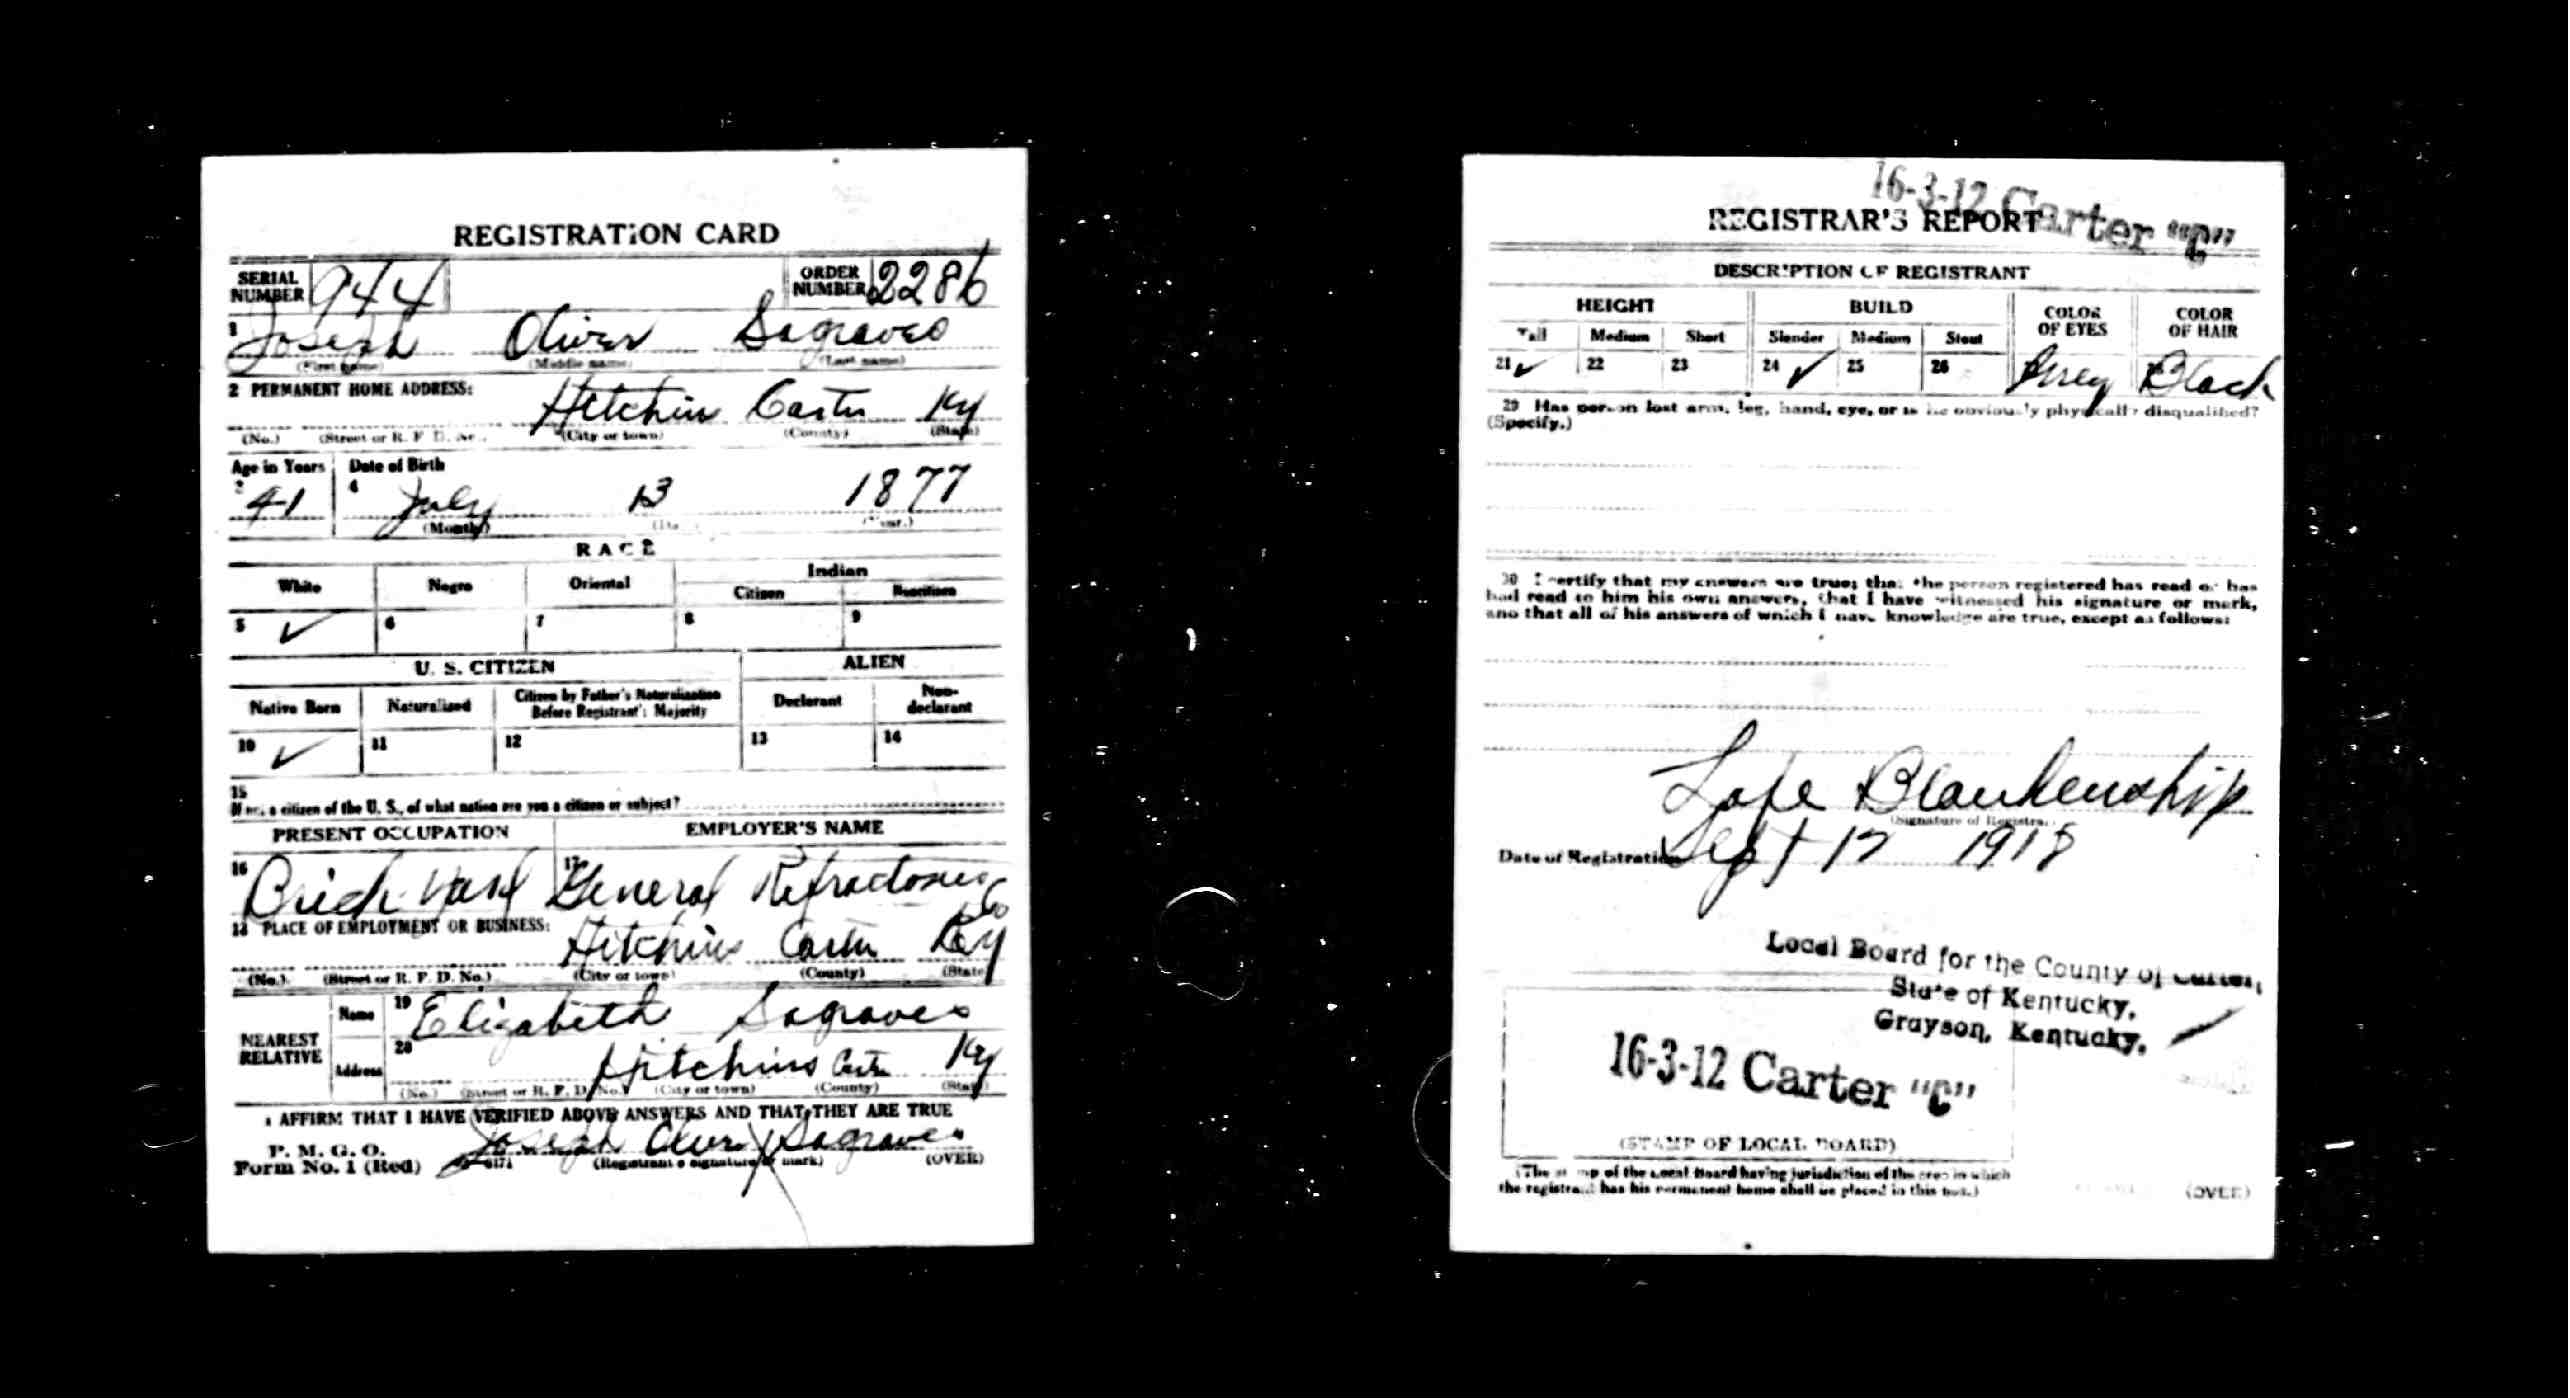 REGISTRATION CARD
SERIAL NUMBER 944 ORDER NUMBER 2286
1 Joseph Oliver Sagraves
(First name) (Middle name) (Last name)
2 PERMANENT HOME ADDRESS:
Hitchins Carter Ky
(No.) (Street or R. F. D. No.) (City or town) (County) (State)
Age in Years Date of Birth
3 41 4 July 13 1877
(Month) (Day) (Year.)
RACE
White Negro Oriental Indian
Citizen Noncitizen
5 ✓ 6 7 8 9
U. S. CITIZEN ALIEN
Native Born Naturalized Citizen by Father's Naturalization Before Registrant's Majority Declarant Non-declarant
10 ✓ 11 12 13 14
15
If not a citizen of the U. S., of what nation are you a citizen or subject?
PRESENT OCCUPATION EMPLOYER'S NAME
16 Brick Yard 17 General Refractories Co
18 PLACE OF EMPLOYMENT OR BUSINESS:
Hitchins Carter Ky
(No.) (Street or R. F. D. No.) (City or town) (County) (State)
NEAREST RELATIVE
Name 19 Elizabeth Sagraves
Address 20 Hitchins Carter Ky
(No.) (Street or R. F. D. No.) (City or town) (County) (State)
I AFFIRM THAT I HAVE VERIFIED ABOVE ANSWERS AND THAT THEY ARE TRUE
P. M. G. O.
Form No. 1 (Red) Joseph Oliver X Sagraves
(Registrant's signature or mark) (OVER)
16-3-12 Carter "C"
REGISTRAR'S REPORT
DESCRIPTION OF REGISTRANT
HEIGHT BUILD COLOR OF EYES COLOR OF HAIR
Tall Medium Short Slender Medium Stout
21 ✓ 22 23 24 ✓ 25 26 Grey Black
29 Has person lost arm, leg, hand, eye, or is he obviously physically disqualified?
(Specify.)
30 I certify that my answers are true; that the person registered has read or has
had read to him his own answers, that I have witnessed his signature or mark,
and that all of his answers of which I have knowledge are true, except as follows:
Lafe Blankenship
(Signature of Registrar)
Date of Registration Sept 12 1918
Local Board for the County of Carter,
State of Kentucky,
Grayson, Kentucky,
16-3-12 Carter "C"
(STAMP OF LOCAL BOARD)
(The stamp of the Local Board having jurisdiction of the area in which
the registrant has his permanent home shall be placed in this box.)
(OVER)